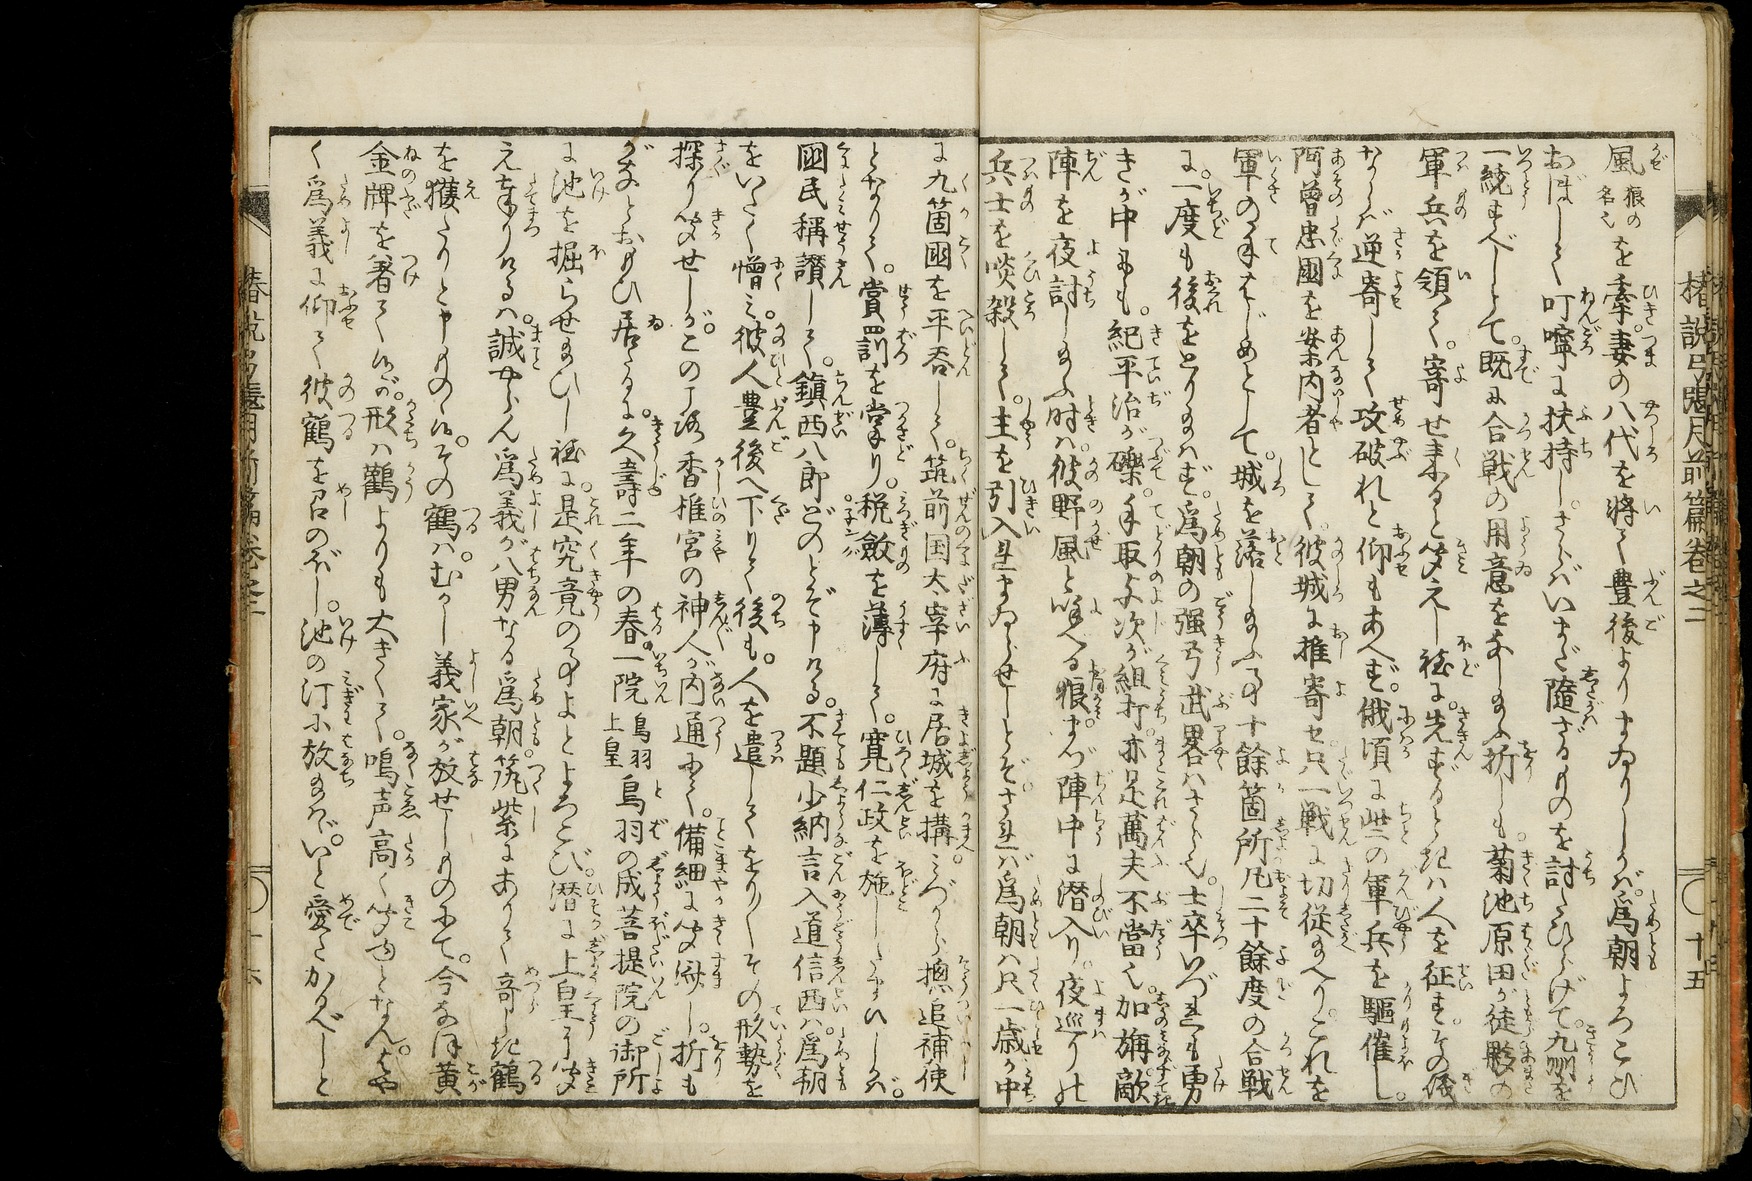 風狼の名也を牽。妻の八代を將て豊後よりまゐりしかば。爲朝よろこび
おぼして叮嚀に扶持し。さらばいまだ隨ざるものを討たひらげて。九州を
一統すべしとて。既に合戦の用意をなし給ふ折しも。菊池原田が徒夥の
軍兵を領て。寄せ来ると聞えし程に。先ずるときは人を征す。その儀
ならば逆寄して攻破れと仰もあへず。俄頃に些の軍兵を駆催し。
阿曽忠國を案内者として。彼城に推寄せ。只一戦に切従へり。これを
軍の手はじめとして。城を落し給ふ事十餘箇所。凡二十餘度の合戦
に。一度も後をとり給はず。爲朝の强弓武畧はさら也。士卒いづれも勇
きが中にも。紀平治が礫。手取与次が組打。亦是萬夫不當く。加旃。敵
陣を夜討し給ふ時は。彼野風と喚べる狼。まづ陣中に潜入り。夜巡りの
兵士を啖殺して。主を引入れまゐらせしとぞ。されば爲朝は只一歳が中
に九箇國を平呑して。筑前国太宰府に居城を搆。みづから摠追補使
となりて。賞罰を掌り。税斂を薄して。寛仁政を施したまひしかば。
國民稱讃して。鎮西八郎どのとぞ申ける。不題少納言入道信西は。爲朝
をいたく憎み。彼人豊後へ下りて後も。人を遣してをり〱その形勢を
探り聞せしが。この叓香椎宮の神人が内通にて。備細に聞涭し。折も
がなとおもひ居たるに。久壽二年の春。一院鳥羽上皇鳥羽の成菩提院の御所
に池を掘らせ給ひし程に。是究竟の事よとよろこび。潜に上皇に聞
え奉りけるは。誠やらん爲義が八男なる爲朝。筑紫にありて奇しき鶴
を獲たりと申ものゝ候。その鶴は。むかし義家が放せしものにて。今なほ黄
金牌を着て候が。形は鸛よりも大きく。鳴声高く聞ゆとなん。はや
く爲義に仰て彼鶴を召のぼし。池の汀に放給はゞ。いと愛たかるべしと
椿説弓張月前篇巻之二
十五
椿説弓張月前篇巻之二
十六